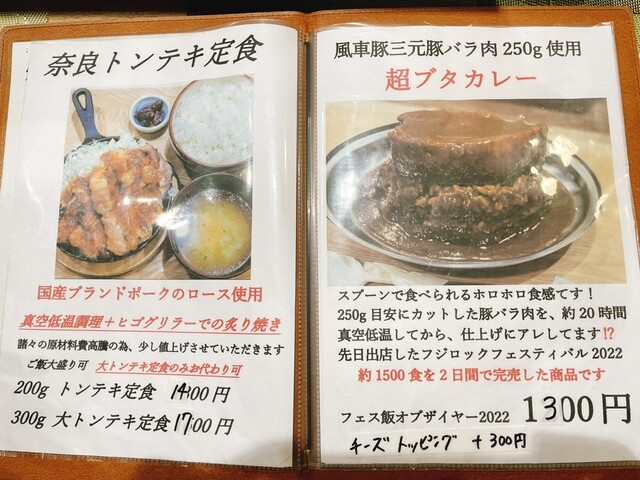 奈良トンテキ定食
国産ブランドポークのロース使用
真空低温調理＋ヒゴグリラーでの炙り焼き
諸々の原材料費高騰の為、少し値上げさせていただきます
ご飯大盛り可 大トンテキ定食のみお代わり可
200g トンテキ定食 1400円
300g 大トンテキ定食 1700円
風車豚三元豚バラ肉250g使用
超ブタカレー
スプーンで食べられるホロホロ食感てす！
250g目安にカットした豚バラ肉を、約20時間
真空低温してから、仕上げにアレしてます⁉
先日出店したフジロックフェスティバル2022
約1500食を2日間で完売した商品です
フェス飯オブザイヤー2022 1300円
チーズトッピング +300円